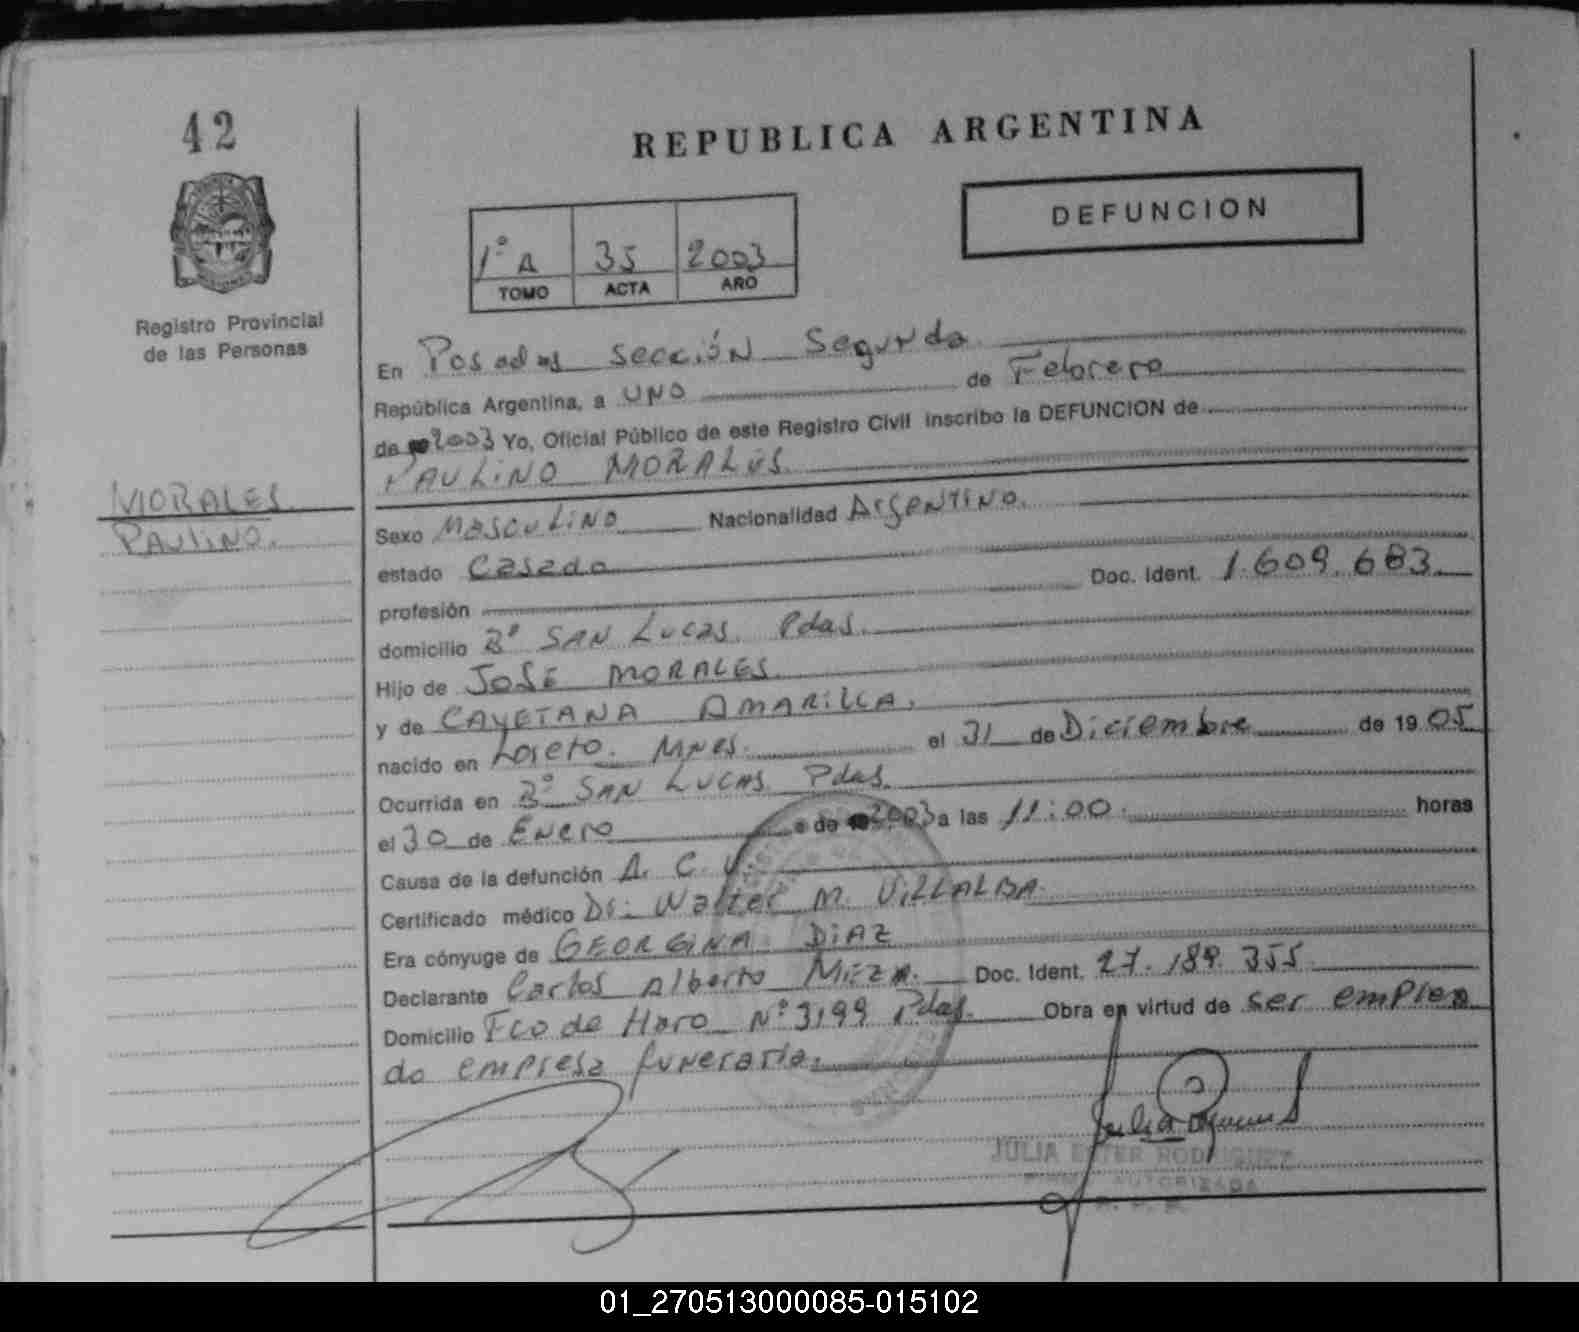 42
REPUBLICA ARGENTINA
DEFUNCION
1º A 35 2003
TOMO ACTA AÑO
Registro Provincial
de las Personas
En Posadas sección Segunda
República Argentina, a UNO de Febrero
de 2003 Yo, Oficial Público de este Registro Civil inscribo la DEFUNCION de
PAULINO MORALES
MORALES
PAULINO.
Sexo Masculino Nacionalidad Argentino.
estado Casado
profesión Doc. Ident. 1.609.683
domicilio Bº SAN Lucas. Pdas.
Hijo de JOSÉ MORALES.
y de CAYETANA AMARILLA.
nacido en Loreto. Mnes. el 31 de Diciembre de 19 05
Ocurrida en Bº SAN LUCAS Pdas.
el 30 de Enero de 2003 a las 11:00 horas
Causa de la defunción A. C. V.
Certificado médico Dr. Walter M. VILLALBA.
Era cónyuge de GEORGINA DIAZ
Declarante Carlos Alberto MEZA. Doc. Ident. 27.189.355
Domicilio Fco de Haro Nº 3199 Pdas. Obra en virtud de ser emplea
do empresa funeraria.
JULIA ESTER RODRIGUEZ
FIRMA AUTORIZADA
01_270513000085-015102